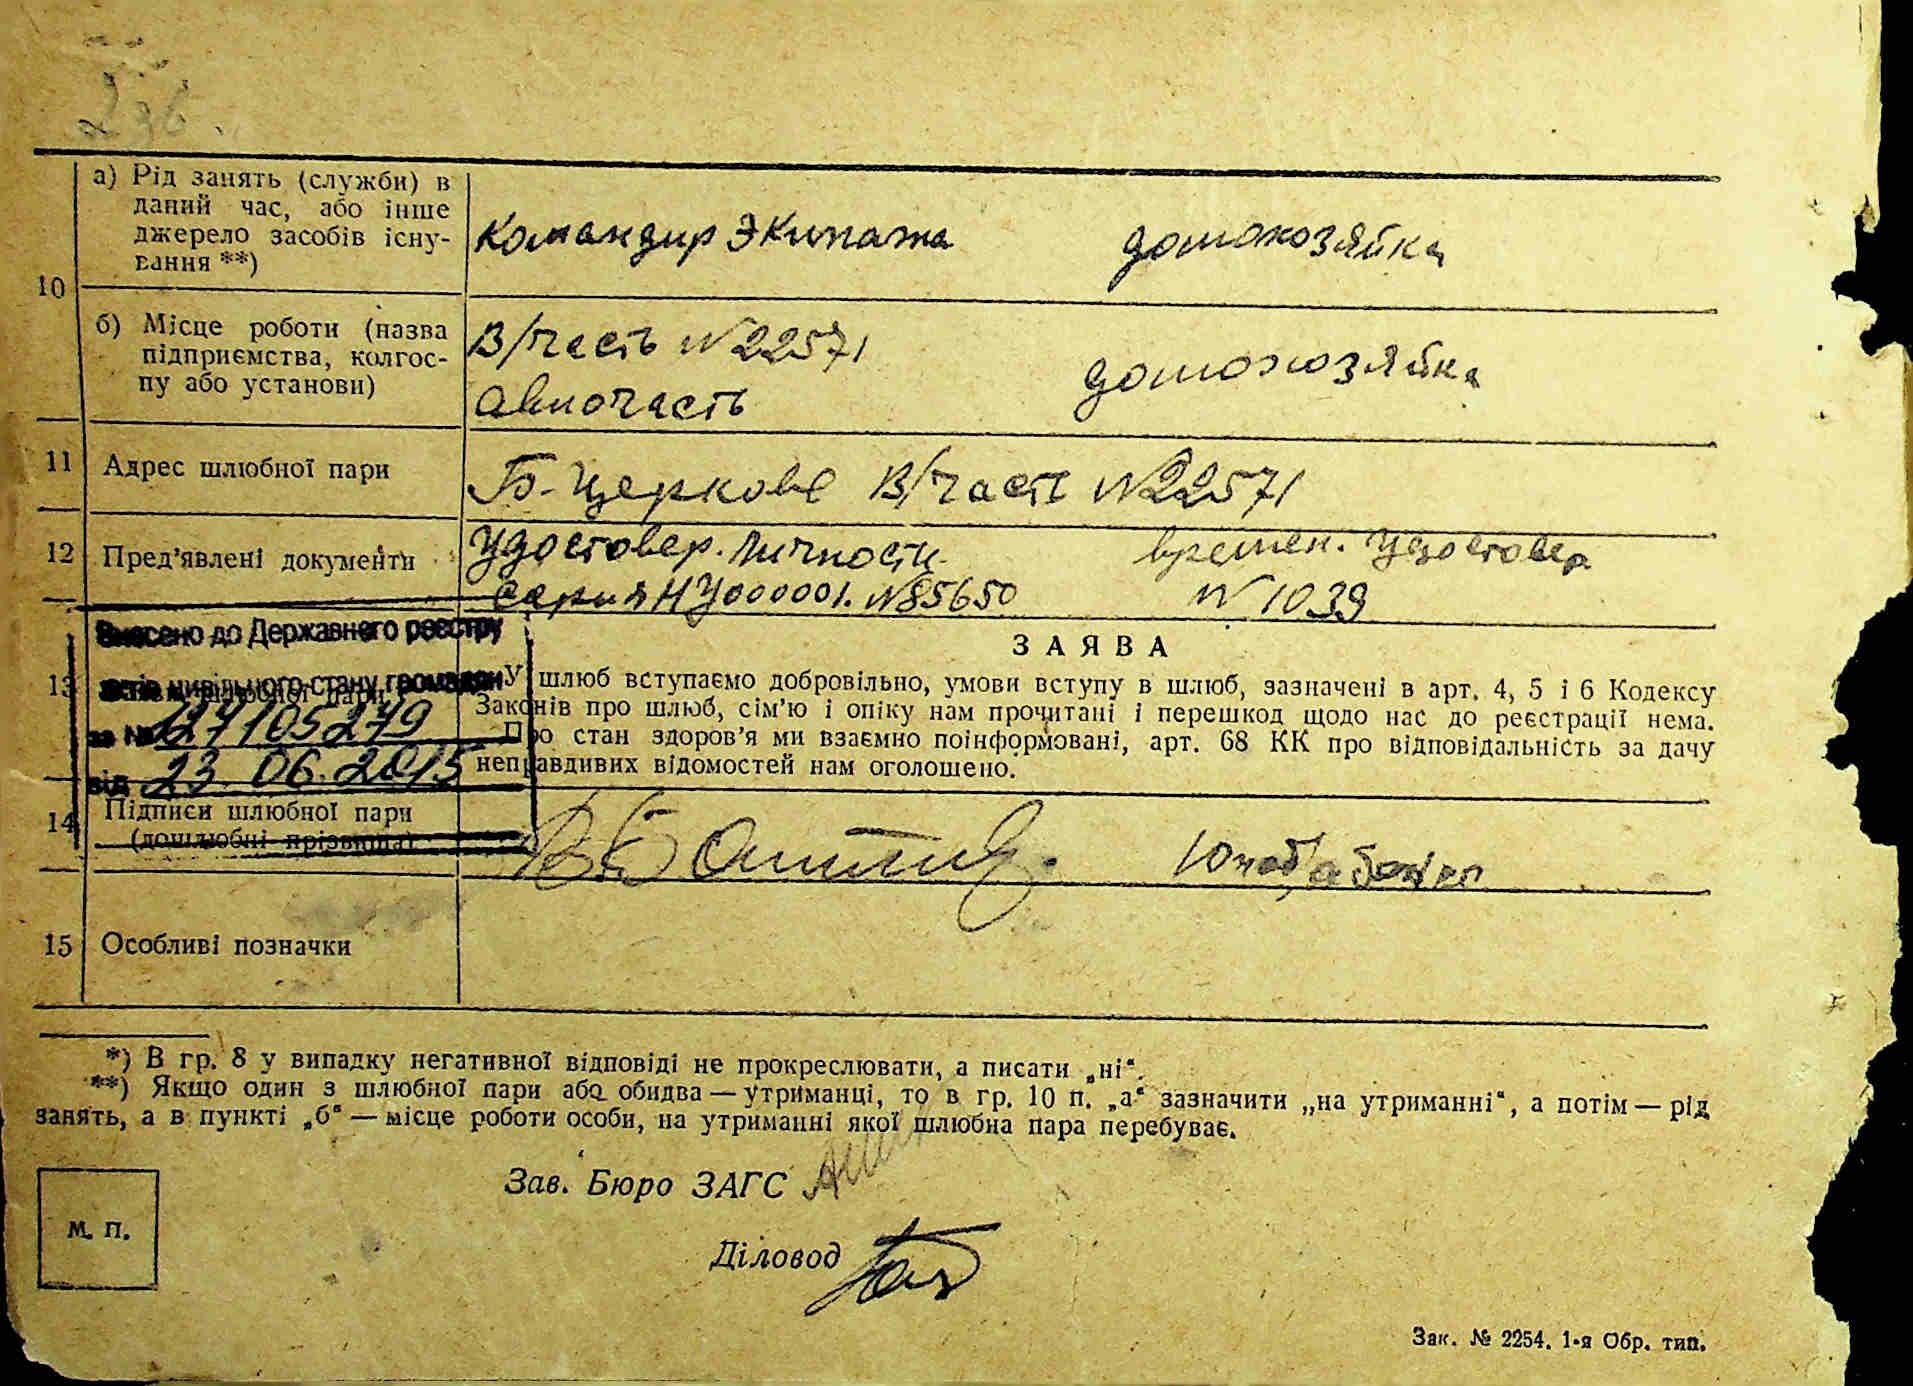 236.
а) Рід занять (служби) в
даний час, або інше
джерело засобів існу-
вання **)
Командир Экипажа домохозяйка
10
б) Місце роботи (назва
підприємства, колгос-
пу або установи)
В/часть №22571
авиочасть
домохозяйка
11 Адрес шлюбної пари
Б-Церковь В/часть №22571
12 Пред'явлені документи
Удостовер. личности времен. Удостовер
серия НУ000001. №85650 №1039
Внесено до Державного реєстру
актів цивільного стану громадян
за № 127105279
від 23.06.2015
13
ЗАЯВА
У шлюб вступаємо добровільно, умови вступу в шлюб, зазначені в арт. 4, 5 і 6 Кодексу
Законів про шлюб, сім'ю і опіку нам прочитані і перешкод щодо нас до реєстрації нема.
Про стан здоров'я ми взаємно поінформовані, арт. 68 КК про відповідальність за дачу
неправдивих відомостей нам оголошено.
14 Підписи шлюбної пари
(дошлюбні прізвища)
15 Особливі позначки
*) В гр. 8 у випадку негативної відповіді не прокреслювати, а писати „ні“.
**) Якщо один з шлюбної пари або обидва — утриманці, то в гр. 10 п. „а“ зазначити „на утриманні“, а потім — рід
занять, а в пункті „б“ — місце роботи особи, на утриманні якої шлюбна пара перебуває.
Зав. Бюро ЗАГС
М. П.
Діловод
Зак. № 2254. 1-я Обр. тип.